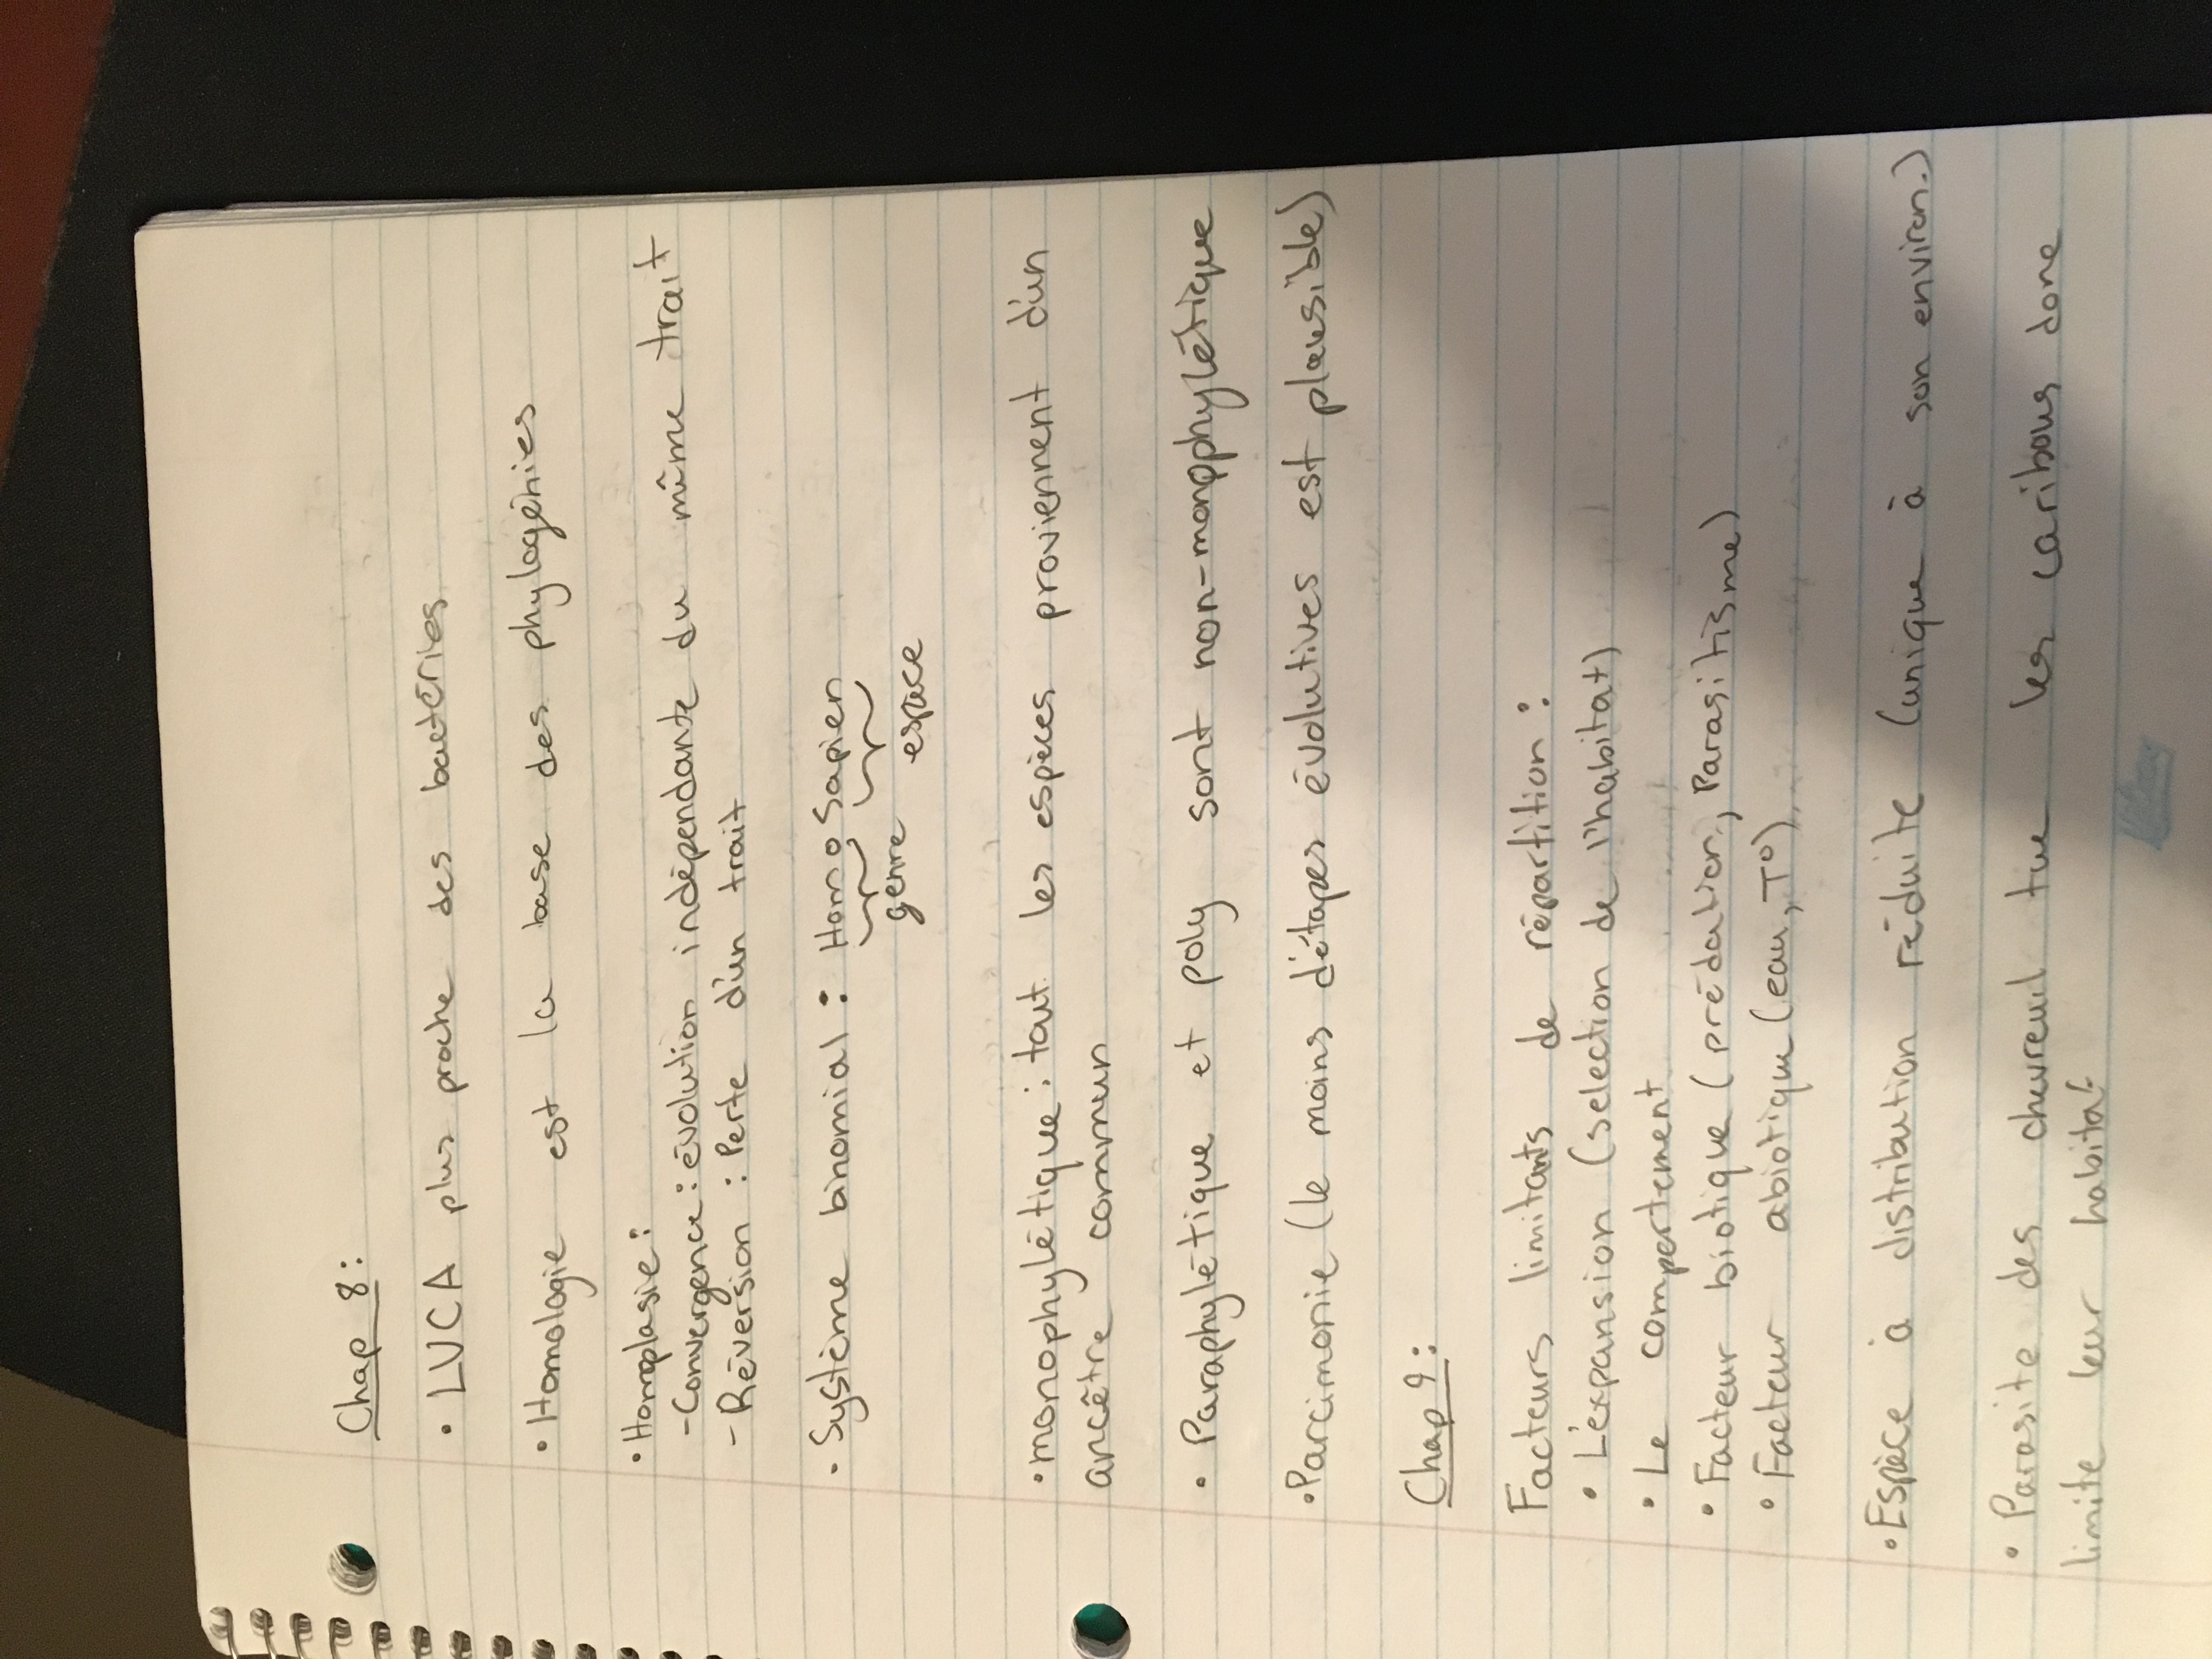 Chap 8:
• LUCA plus proche des bactéries
• Homologie est la base des phylogénies
• Homoplasie:
-Convergence: évolution indépendante du même trait
-Réversion : Perte d'un trait
• Système binomial : Homo Sapien
genre espace
• monophylétique: tout les espèces proviennent d'un
ancêtre commun
• Paraphylétique et poly sont non-monophylétique
• Parcimonie (le moins d'étapes évolutives est plausible)
Chap 9:
Facteurs limitants de répartition :
• L'expansion (selection de l'habitat)
• Le comportement
• Facteur biotique (prédation, Parasitisme)
• Facteur abiotique (eau, T°)
• Espèce à distribution réduite (unique à son environ.)
• Parasite des chevreuil tue les caribous donc
limite leur habitat